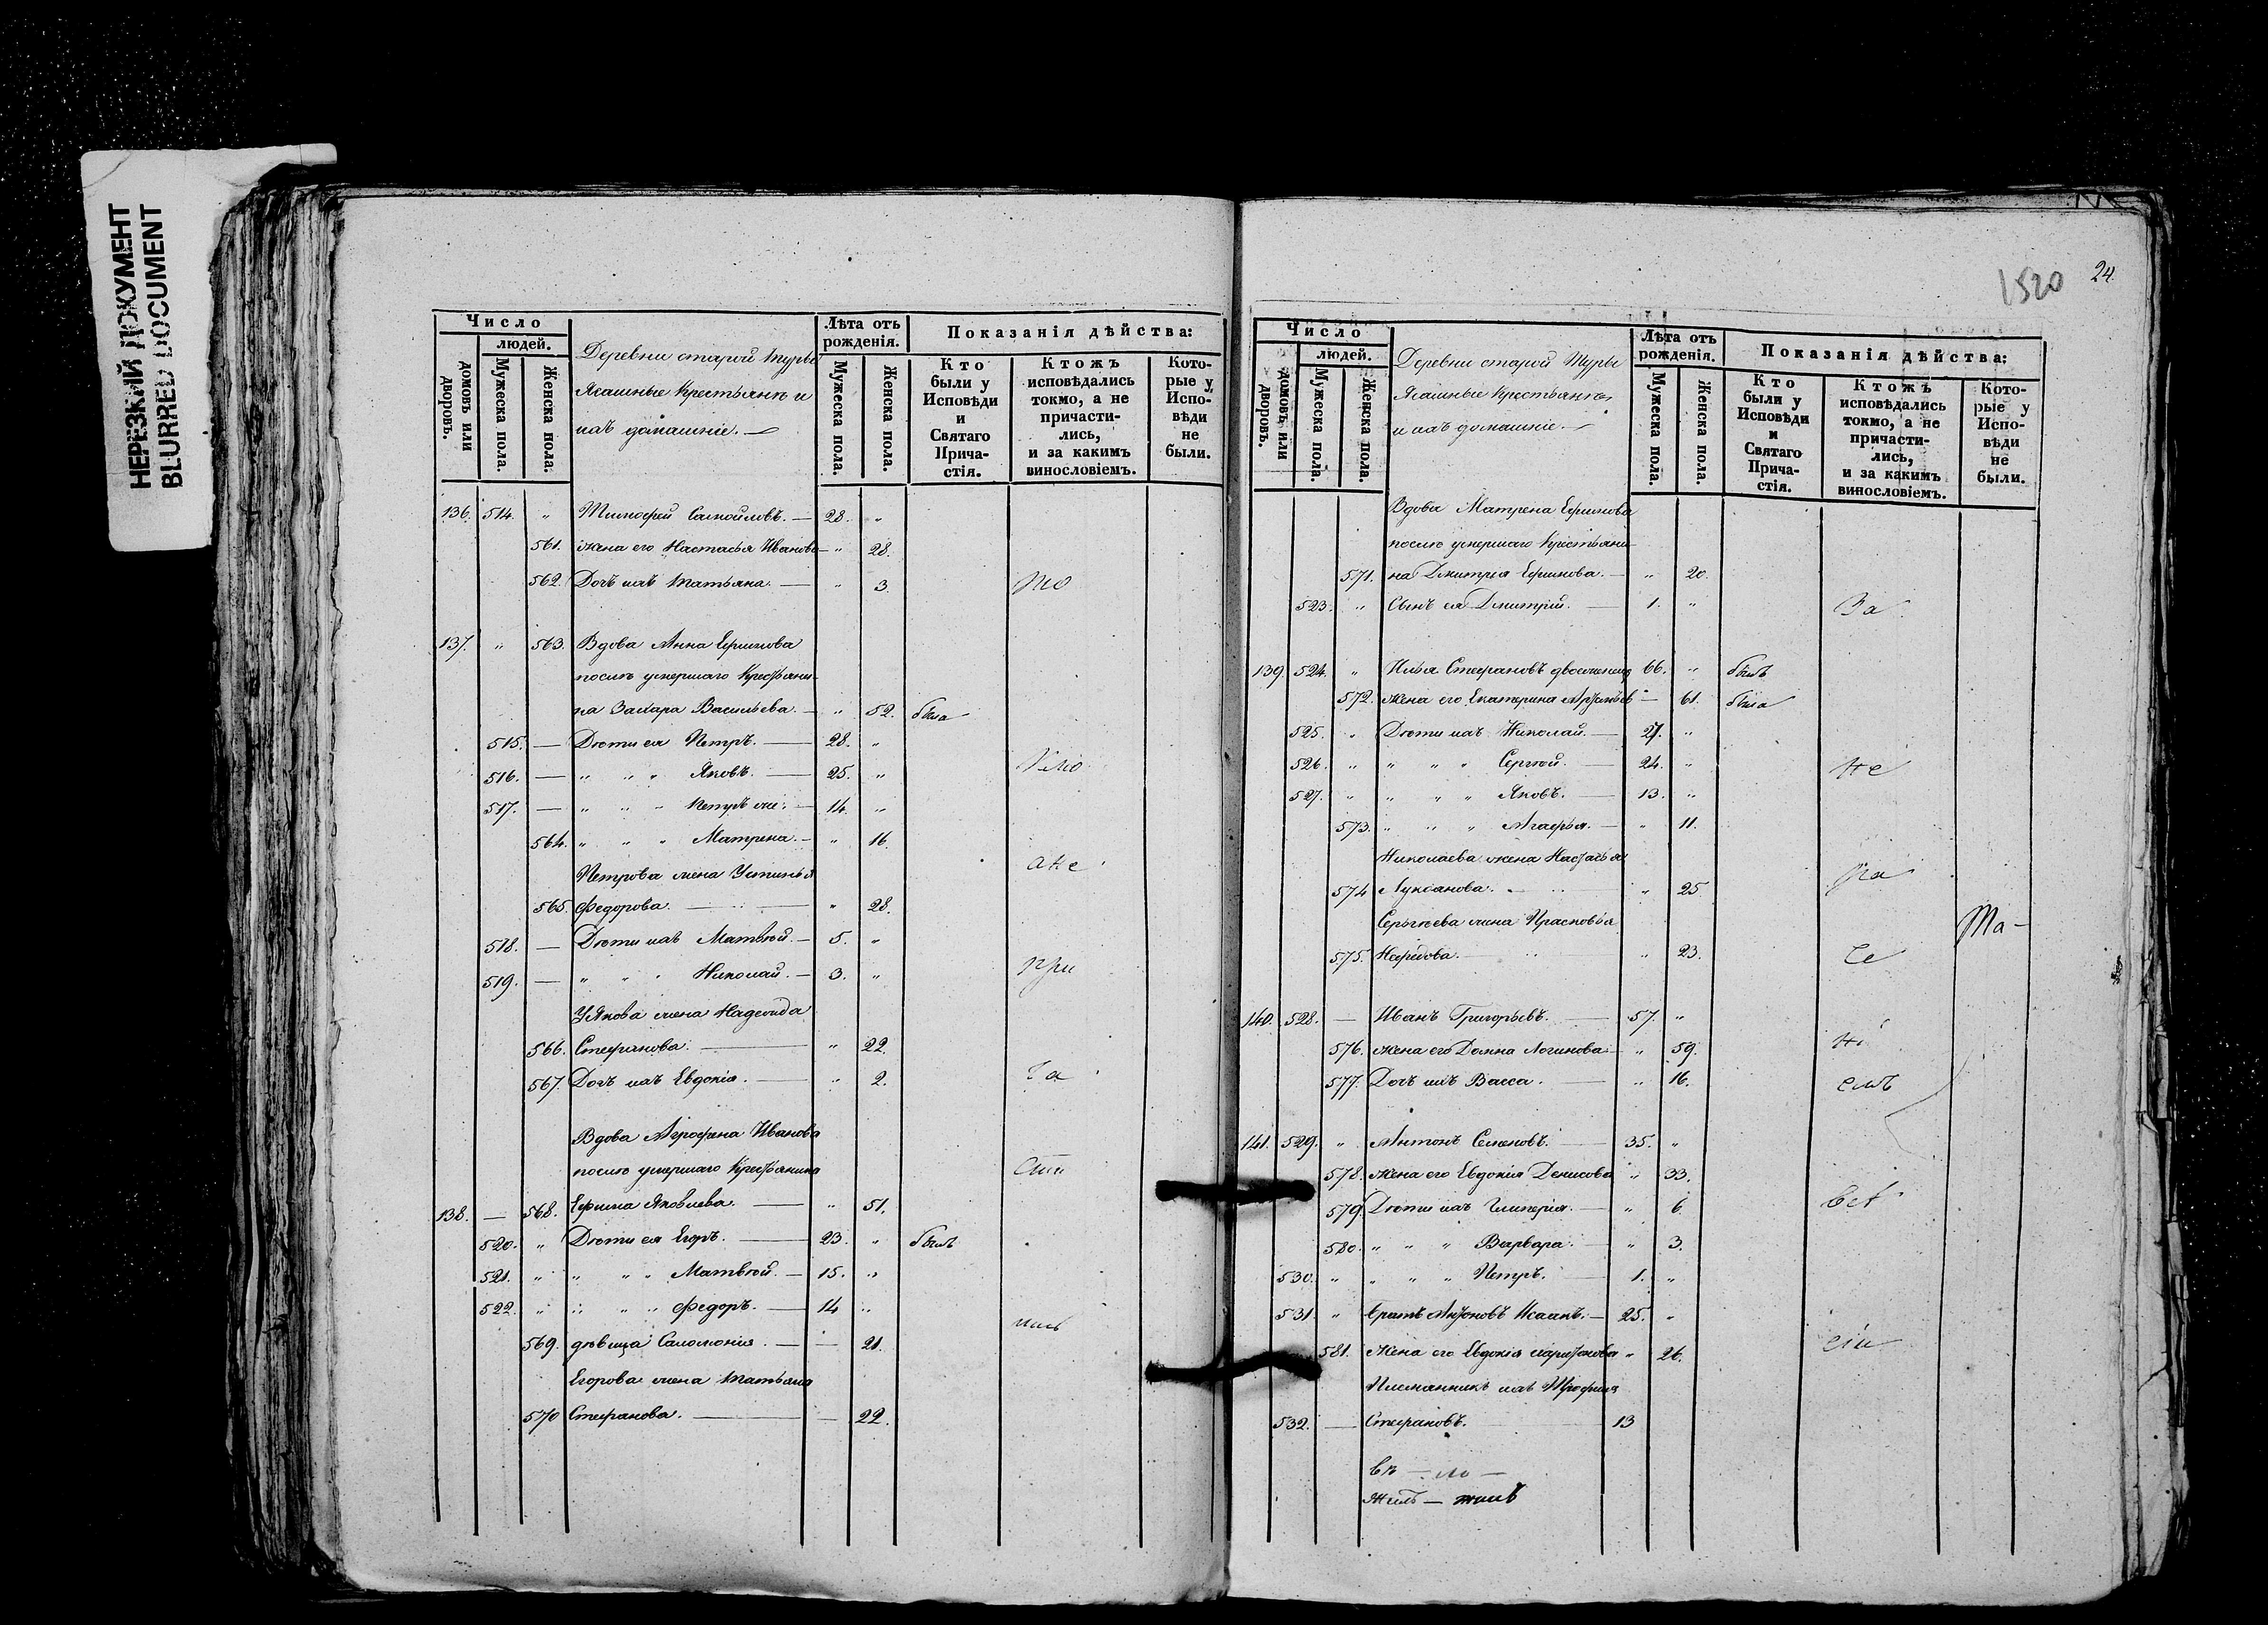 НЕРЕЗКИЙ ДОКУМЕНТ
BLURRED DOCUMENT
Число
людей.
домовъ или дворовъ.
Мужеска пола.
Женска пола.
Деревни старой Турвы
Ясашные Крестьянѣ и
ихъ домашніе.
Лѣта отъ рожденія.
Мужеска пола.
Женска пола.
Показанія дѣйства:
Кто были у Исповѣди и Святаго Прича-стія.
Ктожъ исповѣдались токмо, а не причасти-лись, и за какимъ винословіемъ.
Кото-рые у Испо-вѣди не были.
136. 514. " Тимофей Самойловъ. — 28. "
561. жена его Настасья Иванова — " 28.
562. Дочь ихъ Татьяна. — " 3. то
137. " 563. Вдова Анна Ефимова
послѣ умершаго Крестьяни-
на Захара Васильева. — " 52. была
515. — Дѣти ея Петръ. — 28. "
516. — " " " Яковъ. — 25. "
517. — " " " Петръ — 14. "
564. " " " Матрена. — " 16.
Петрова жена Устинья а не
565. Федорова. — " 28.
518. — Дѣти ихъ Матвѣй. — 5. "
519. — " " " Николай. — 3. " при
Якова жена Надежда
566. Стефанова. — " 22.
567. Дочь ихъ Евдокія. — " 2. ча
Вдова Агрофена Иванова
послѣ умершаго Крестьянина сти
138. — 568. Ефима Яковлева. — " 51.
520. " Дѣти ея Егоръ. — 23. " былъ
521. " " " " Матвѣй. — 15. "
522. " " " " Федоръ. — 14 "
лись
569. дѣвица Саломонія. — — 21.
Егорова жена Татьяна
570 Стефанова. — — 22.
1520 24.
Число
людей.
домовъ или дворовъ.
Мужеска пола.
Женска пола.
Деревни старой Турвы
Ясашные Крестьянѣ
и ихъ домашніе.
Лѣта отъ рожденія.
Мужеска пола.
Женска пола.
Показанія дѣйства:
Кто были у Исповѣди и Святаго Прича-стія.
Ктожъ исповѣдались токмо, а не причасти-лись, и за какимъ винословіемъ.
Кото-рые у Испо-вѣди не были.
Вдова Матрена Ефимова
послѣ умершаго Крестьяни-
571. на Дмитрія Ефимова. — " 20.
523. " Сынъ ея Дмитрій. — 1. " За
139. 524. " Илья Стефановъ двоеженецъ 66. " былъ
572. жена его Екатерина — 61. была
525. " Дѣти ихъ Николай. — 27. "
526. " " " " Сергѣй. — 24. " не
527. " " " " Яковъ. — 13. "
573. " " " Агафья. — " 11.
Николаева жена Настасья
574 Лукоанова. " 25 ра
Сергѣева жена Прасковья
Та-
575. " 23. че
140. 528. — Иванъ Григорьевъ. — 57. "
576. жена его Домна Логинова — " 59. ні
577. Дочь ихъ Васса. — " 16. емъ
141. 529. " Антонъ Семеновъ. — 35. "
578. жена его Евдокія Денисова " 33.
579. Дѣти ихъ Гликерія. — " 6.
580. " " " Варвара. — " 3.
530. " " " " Петръ. 1. "
531. " Братъ Антоновъ Исаакъ. — 25. "
581. жена его Евдокія Харитонова " 26.
Племянникъ ихъ Трофимъ
532. — Стефановъ. 13